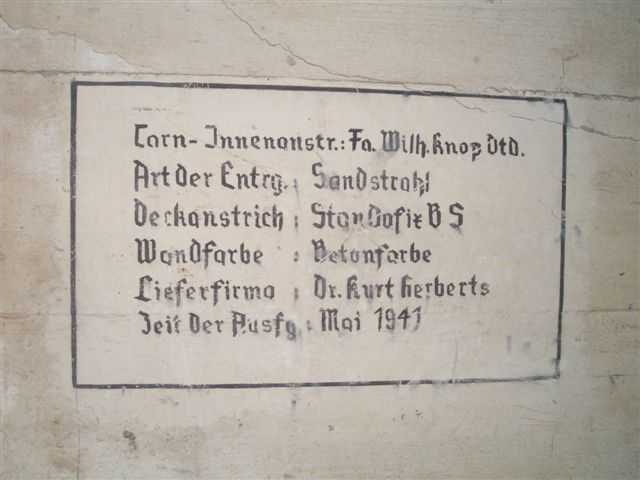 Tarn-Innenanstr.: Fa. Wilh. Knop Dtd.
Art der Entrg. : Sandstrahl
Deckanstrich : Standofix B S
Wandfarbe : Betonfarbe
Lieferfirma : Dr. Kurt Herberts
Zeit der Ausfg : Mai 1941